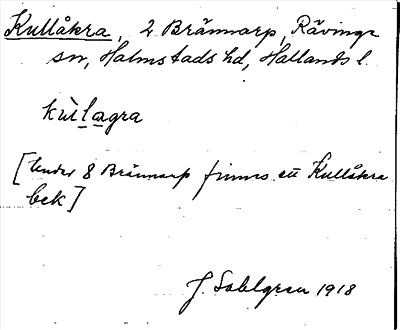 Kullåkra, 2 Brännarp, Rävinge
sn, Halmstads hd, Hallands l.
kùlagra
[Under 8 Brännarp finnes ett Kullåkra
bek]
J. Sahlgren 1918